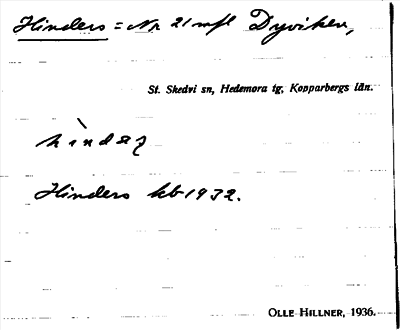 Hinders = Nr 21 mfl Dyviken,
St. Skedvi sn, Hedemora tg, Kopparbergs län.
hìndaʒ
Hinders kb 1932.
OLLE HILLNER, 1936.